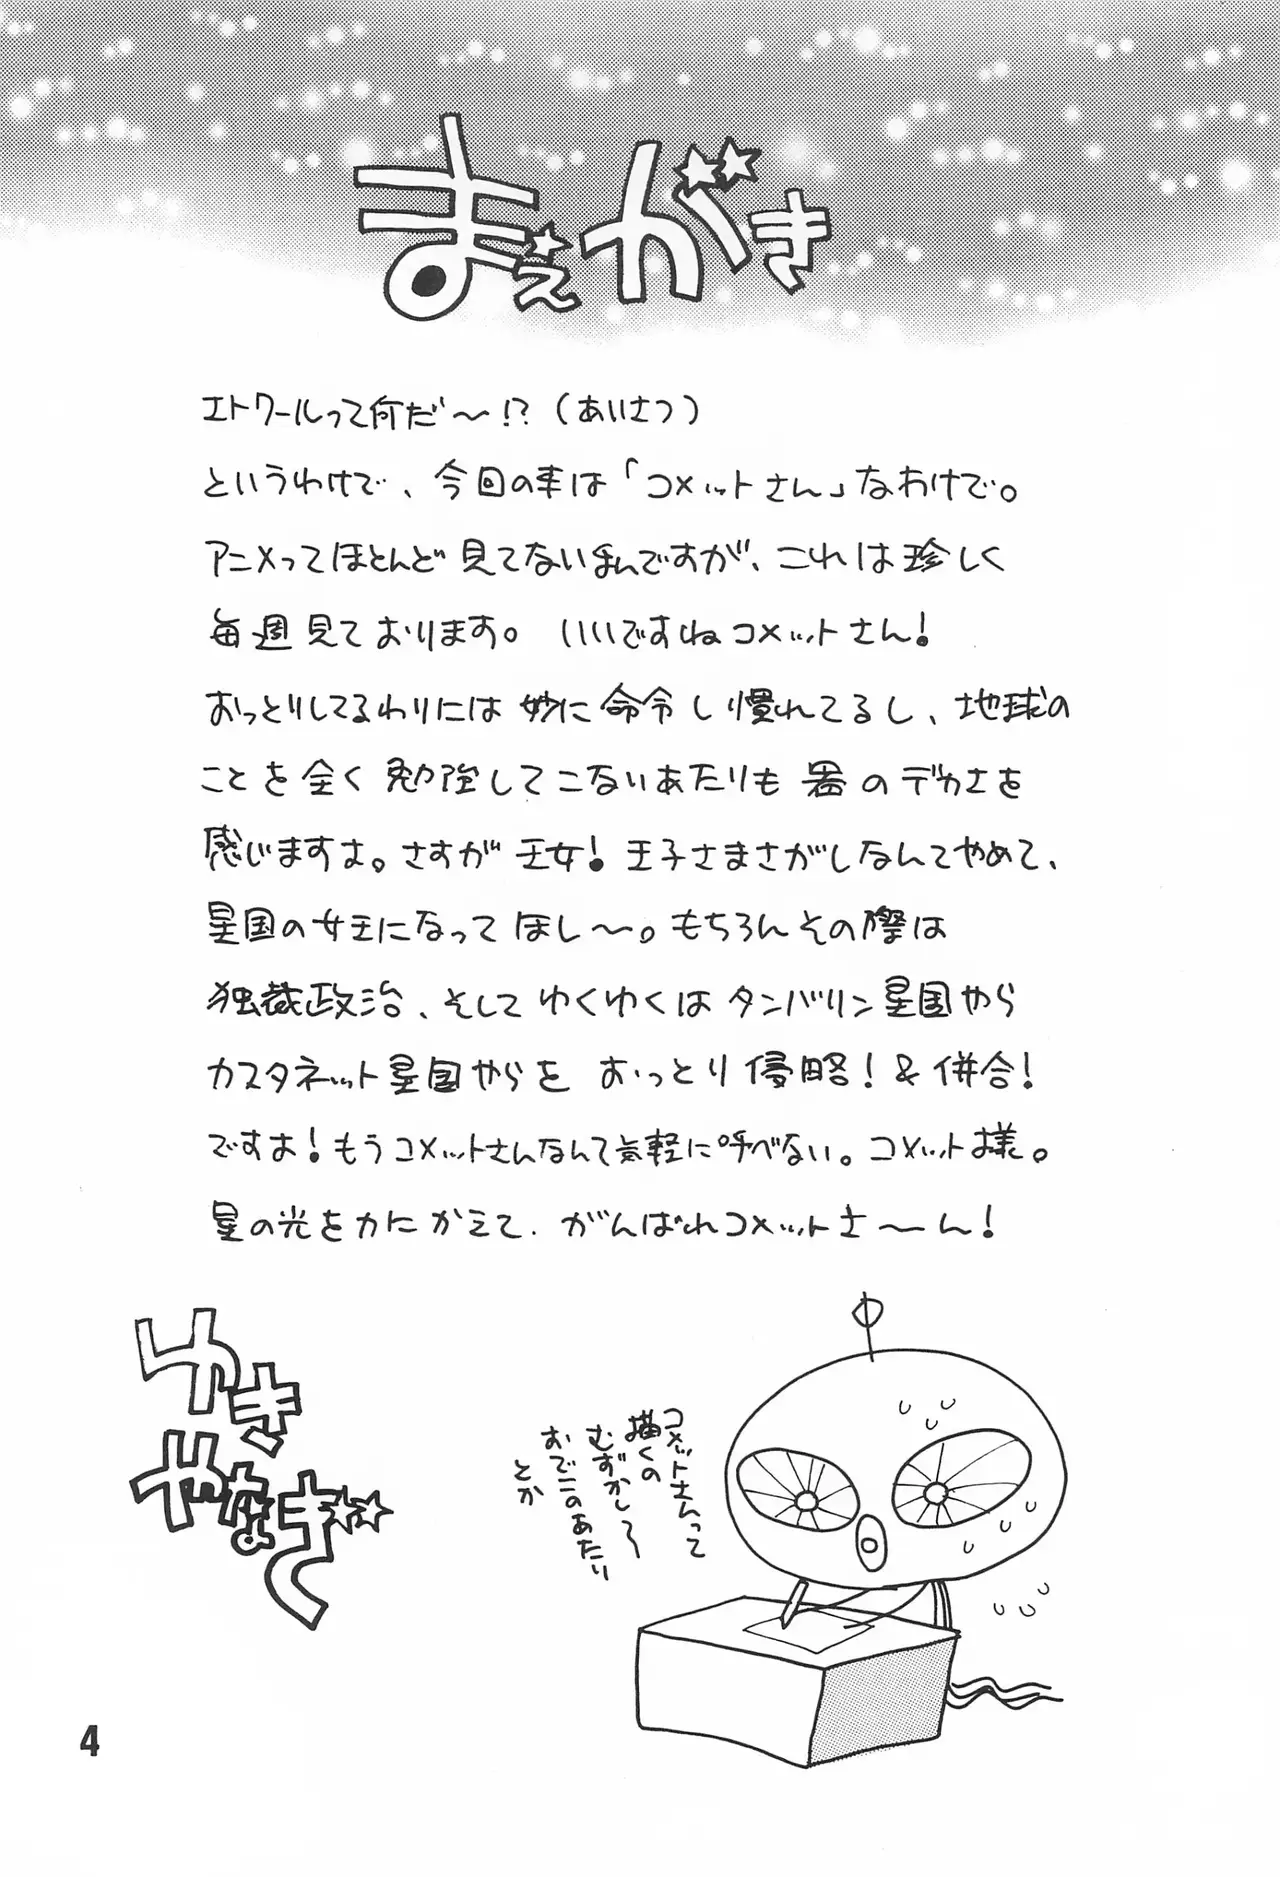 まえがき
エトワールって何だ〜!?（あいさつ）
というわけで、今回の本は「コメットさん」なわけで。
アニメってほとんど見てないほんですが、これは珍しく
毎週見ております。いいですねコメットさん！
おっとりしてるわりには妙に命令し慣れてるし、地球の
ことを全く勉強してこないあたりも器のデカさを
感じますよ。さすが王女！王子さまさがしなんてやめて、
星国の女王になってほし〜。もちろんその際は
独裁政治、そしてゆくゆくはタンバリン星国やら
カスタネット星国やらをおっとり侵略！&併合！
ですよ！もうコメットさんなんて気軽に呼べない。コメット様。
星の光を力にかえて、がんばれコメットさ〜ん！
コメットさんって
描くの
むずかし〜
おでこのあたり
とか
ゆき
やなぎ
4